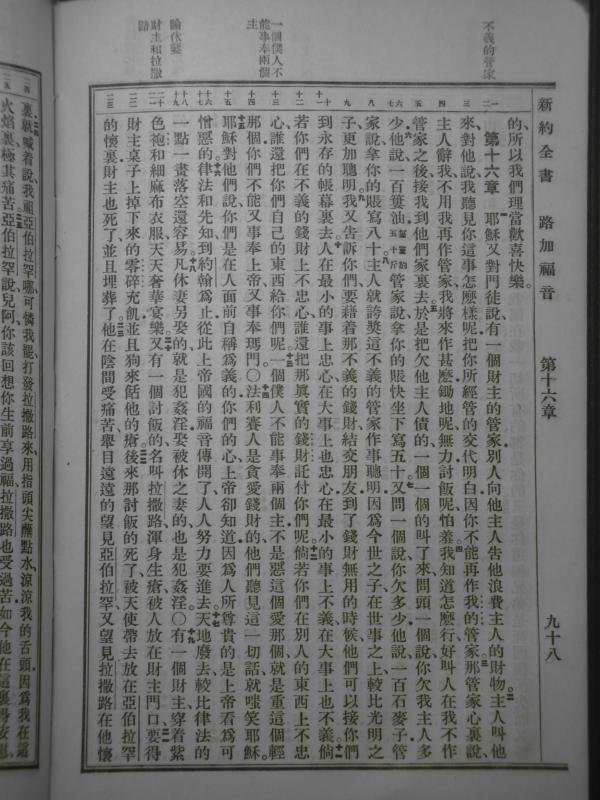 新約全書 路加福音 第十六章 九十八
不義的管家
一個僕人不能事奉兩個主
論休妻
財主和拉撒路
的所以我們理當歡喜快樂
第十六章 耶穌又對門徒說有一個財主的管家別人向他主人告他浪費主人的財物主人叫他
來對他說我聽見你這事怎麼樣呢把你所經管的交代明白因你不能再作我的管家那管家心裏說
主人辭我不用我再作管家我將來作甚麼鋤地呢無力討飯呢怕羞我知道怎麼行好叫人在我不作
管家之後接我到他們家裏去於是把欠他主人債的一個一個的叫了來問頭一個說你欠我主人多
少他說一百簍油每簍約五十斤管家說拿你的賬快坐下寫五十又問一個說你欠多少他說一百石麥子管
家說拿你的賬寫八十主人就誇獎這不義的管家作事聰明因爲今世之子在世事之上較比光明之
子更加聰明我又告訴你們要藉着那不義的錢財結交朋友到了錢財無用的時候他們可以接你們
到永存的帳幕裏去人在最小的事上忠心在大事上也忠心在最小的事上不義在大事上也不義倘
若你們在不義的錢財上不忠心誰還把那眞實的錢財託付你們呢倘若你們在別人的東西上不忠
心誰還把你們自己的東西給你們呢一個僕人不能事奉兩個主不是惡這個愛那個就是重這個輕
那個你們不能又事奉上帝又事奉瑪門○法利賽人是貪愛錢財的他們聽見這一切話就嗤笑耶穌
耶穌對他們說你們是在人面前自稱爲義的你們的心上帝卻知道因爲人所尊貴的是上帝看爲可
憎惡的律法和先知到約翰爲止從此上帝國的福音傳開了人人努力要進去天地廢去較比律法的
一點一畫落空還容易凡休妻另娶的就是犯姦淫娶被休之妻的也是犯姦淫○有一個財主穿着紫
色袍和細麻布衣服天天奢華宴樂又有一個討飯的名叫拉撒路渾身生瘡被人放在財主門口要得
財主桌子上掉下來的零碎充飢並且狗來餂他的瘡後來那討飯的死了被天使帶去放在亞伯拉罕
的懷裏財主也死了並且埋葬了他在陰間受痛苦舉目遠遠的望見亞伯拉罕又望見拉撒路在他懷
裏就喊着說我祖亞伯拉罕哪可憐我罷打發拉撒路來用指頭尖蘸點水涼涼我的舌頭因爲我在這
火焰裏極其痛苦亞伯拉罕說兒阿你該回想你生前享過福拉撒路也受過苦如今他在這裏得安慰